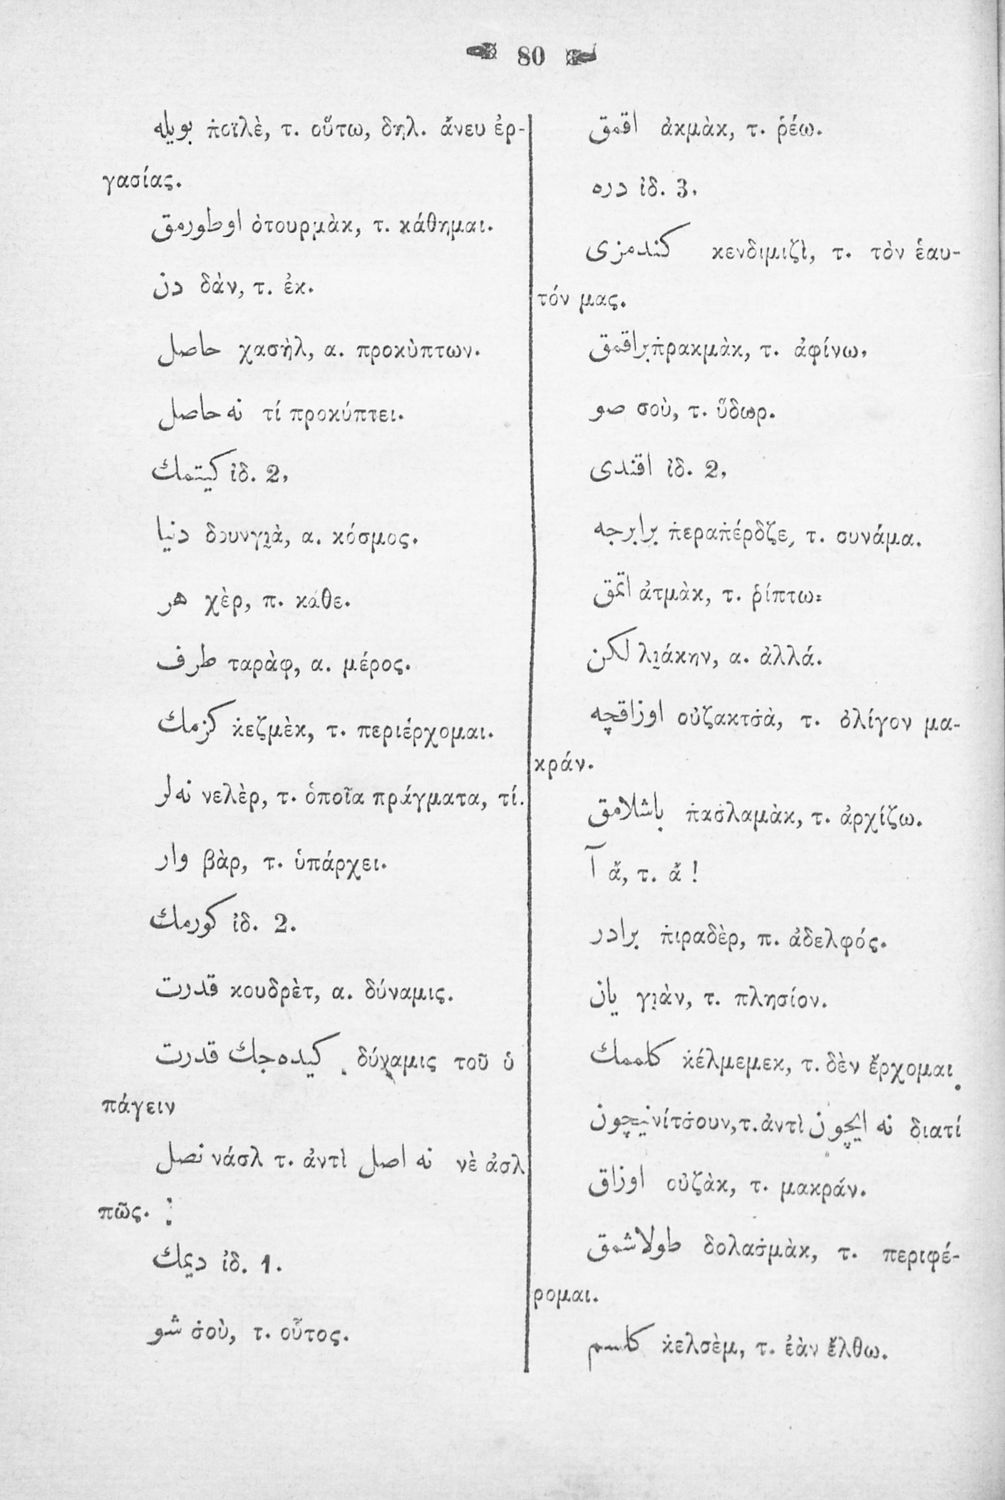 80
بويله π̇οϊλὲ, τ. οὕτω, δηλ. ἄνευ ἐρ-
γασίας.
اوطورمق ὀτουρμὰκ, τ. κάθημαι.
دن δὰν, τ. ἐκ.
حاصل χασὴλ, α. προκὺπτων.
نه حاصل τί προκύπτει.
كيتمك ἰδ. 2.
دنيا δουνγι̯ὰ, α. κόσμος.
هر χὲρ, π. κάθε.
طرف ταρὰφ, α. μέρος.
كزمك κ̇εζμὲκ, τ. περιέρχομαι.
نه لر νελὲρ, τ. ὁποῖα πράγματα, τί.
وار βὰρ, τ. ὑπάρχει.
كورمك ἰδ. 2.
قدرت κουδρὲτ, α. δύναμις.
كيده جك قدرت δύναμις τοῦ ὑ
πάγειν
نصل νάσλ τ. ἀντὶ نه اصل νὲ ἀσλ
πῶς.
ديمك ἰδ. 1.
شو σ̇οὺ, τ. οὗτος.
اقمق ἀκμὰκ, τ. ῥέω.
دره ἰδ. 3.
كندمزى κενδιμιζὶ, τ. τὸν ἑαυ-
τόν μας.
براقمق π̇ρακμὰκ, τ. ἀφίνω.
صو σοὺ, τ. ὕδωρ.
اقندى ἰδ. 2.
برابرجه π̇εραπ̇έρδζε, τ. συνάμα.
اتمق ἀτμὰκ, τ. ῥίπτω.
لكن λι̯άκην, α. ἀλλά.
اوزاقچه οὐζακτσ̇ὰ, τ. ὀλίγον μα-
κράν.
باشلامق π̇ασ̇λαμὰκ, τ. ἀρχίζω.
آ ἄ, τ. ἄ !
برادر π̇ιραδὲρ, π. ἀδελφός.
يان γι̯ὰν, τ. πλησίον.
كلممك κ̇έλμεμεκ, τ. δὲν ἔρχομαι
نيچون νίτσ̇ουν, τ. ἀντὶ نه ايچون διατί
اوزاق οὐζὰκ, τ. μακράν.
طولاشمق δολασ̇μὰκ, τ. περιφέ-
ρομαι.
كلسم κ̇ελσὲμ, τ. ἐὰν ἔλθω.